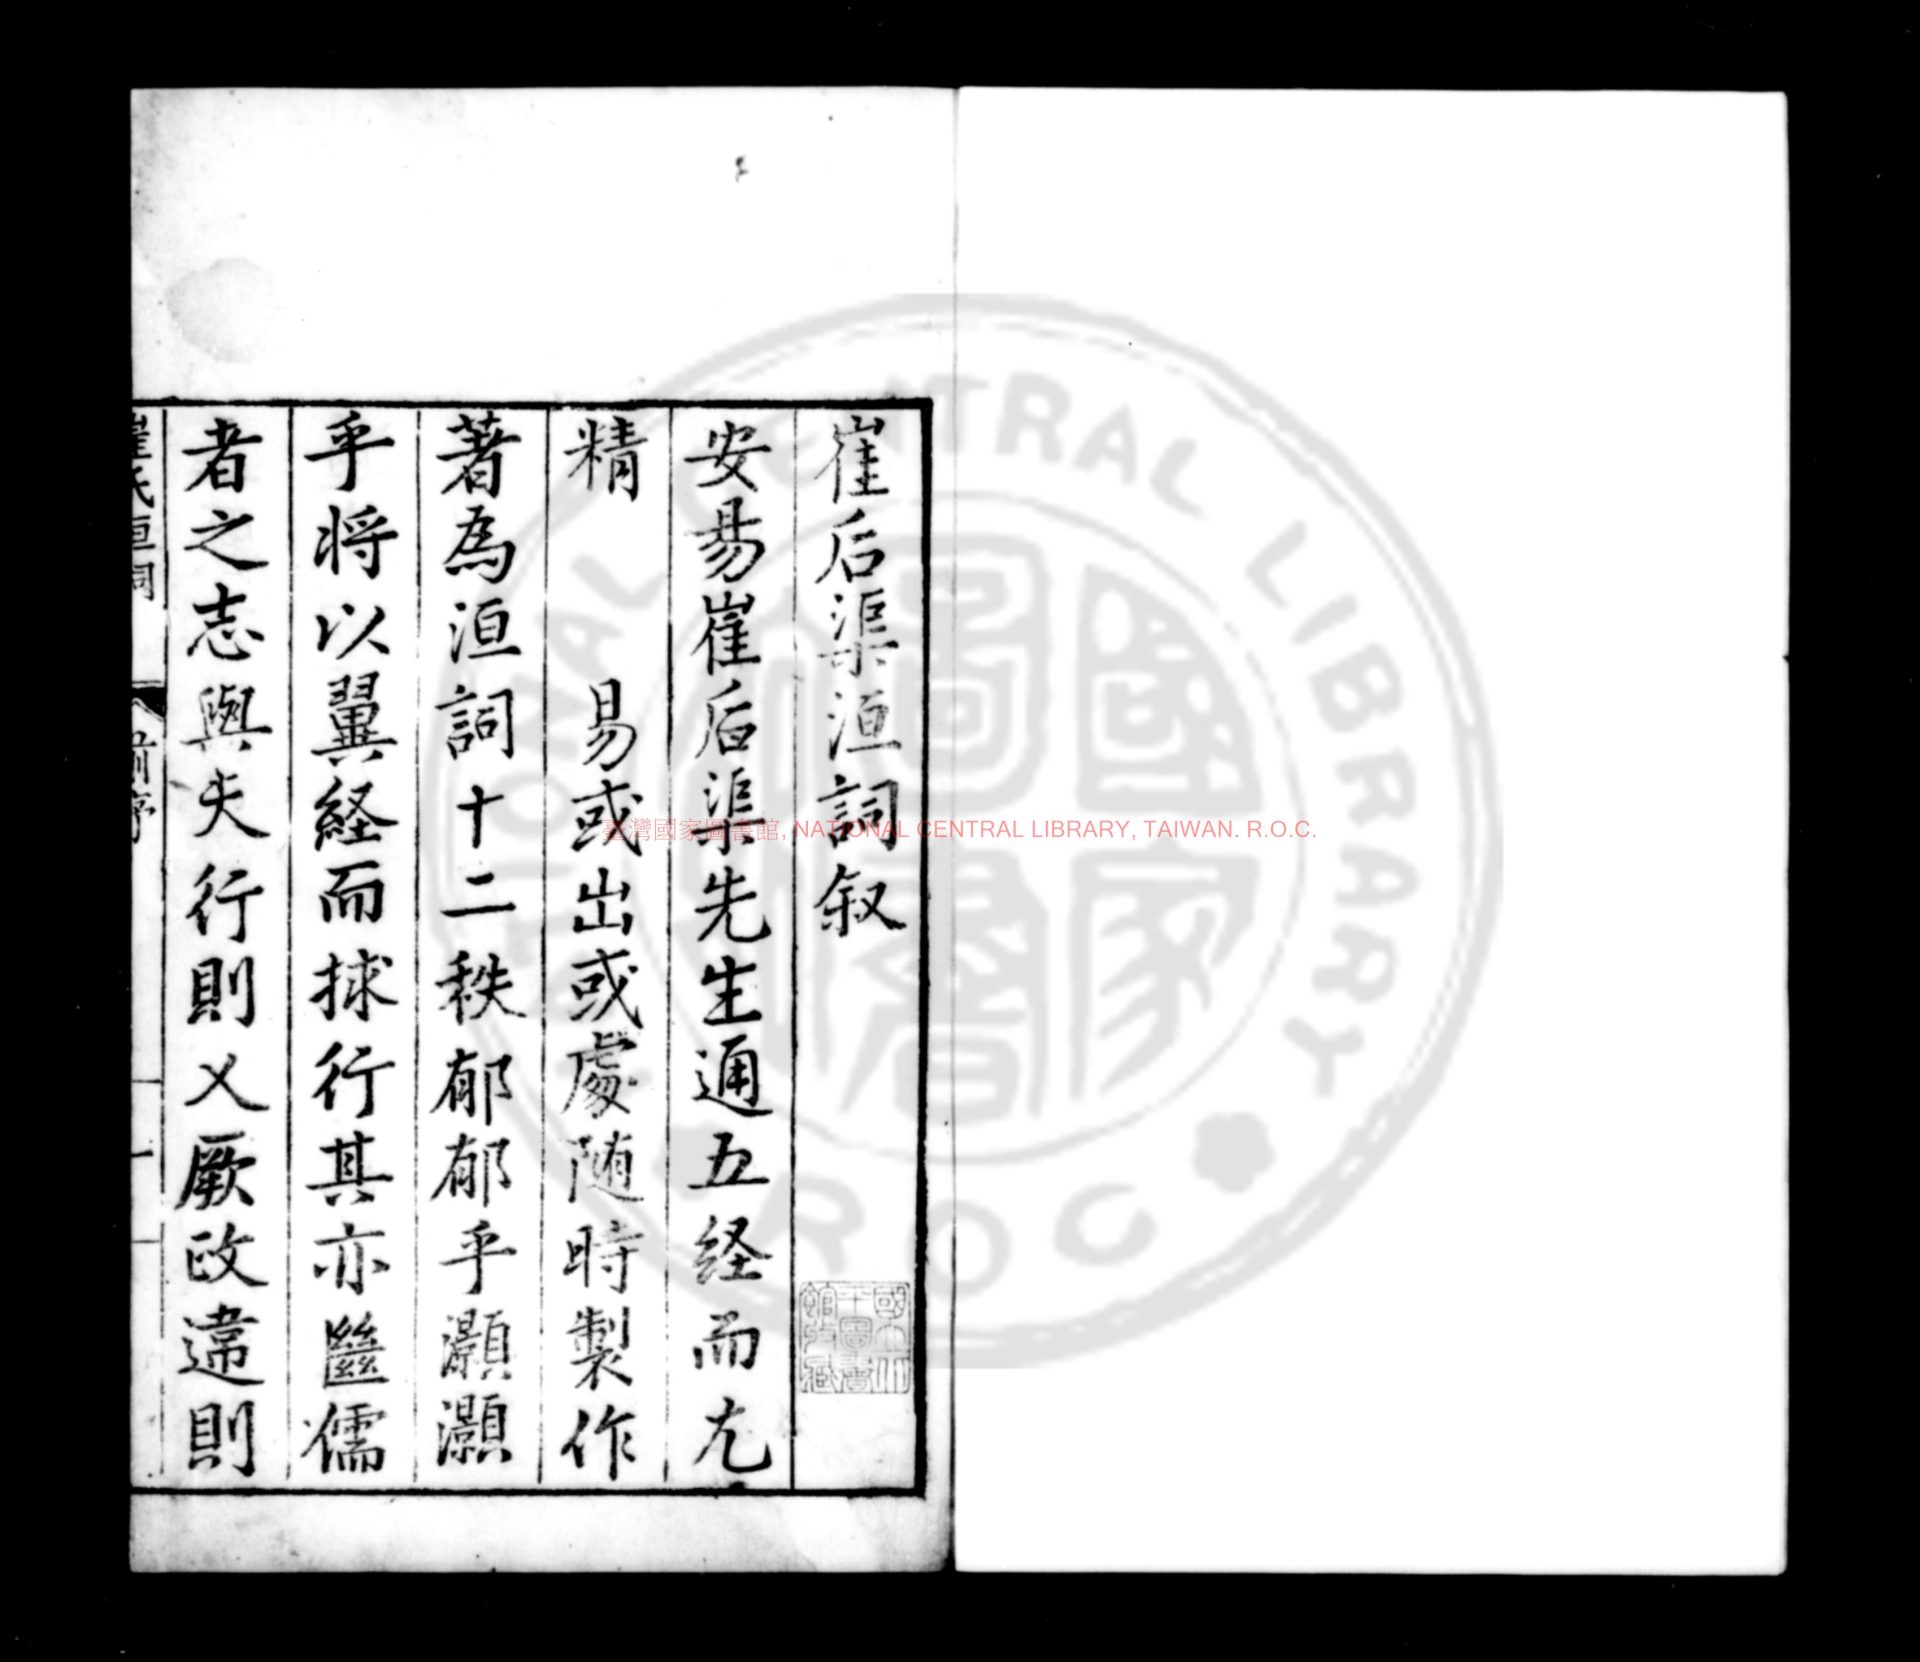 崔后渠洹詞叙
安昜崔后渠先生通五経而尢
精　　易或出或處随時製作
著為洹詞十二秩郁郁乎灝灝
乎将以翼経而捄行其亦繼儒
者之志與夫行則乂厥政違則
崔氏洹詞
前序
一
臺灣國家圖書館, NATIONAL CENTRAL LIBRARY, TAIWAN. R.O.C.
NATIONAL CENTRAL LIBRARY
R.O.C
國家圖書